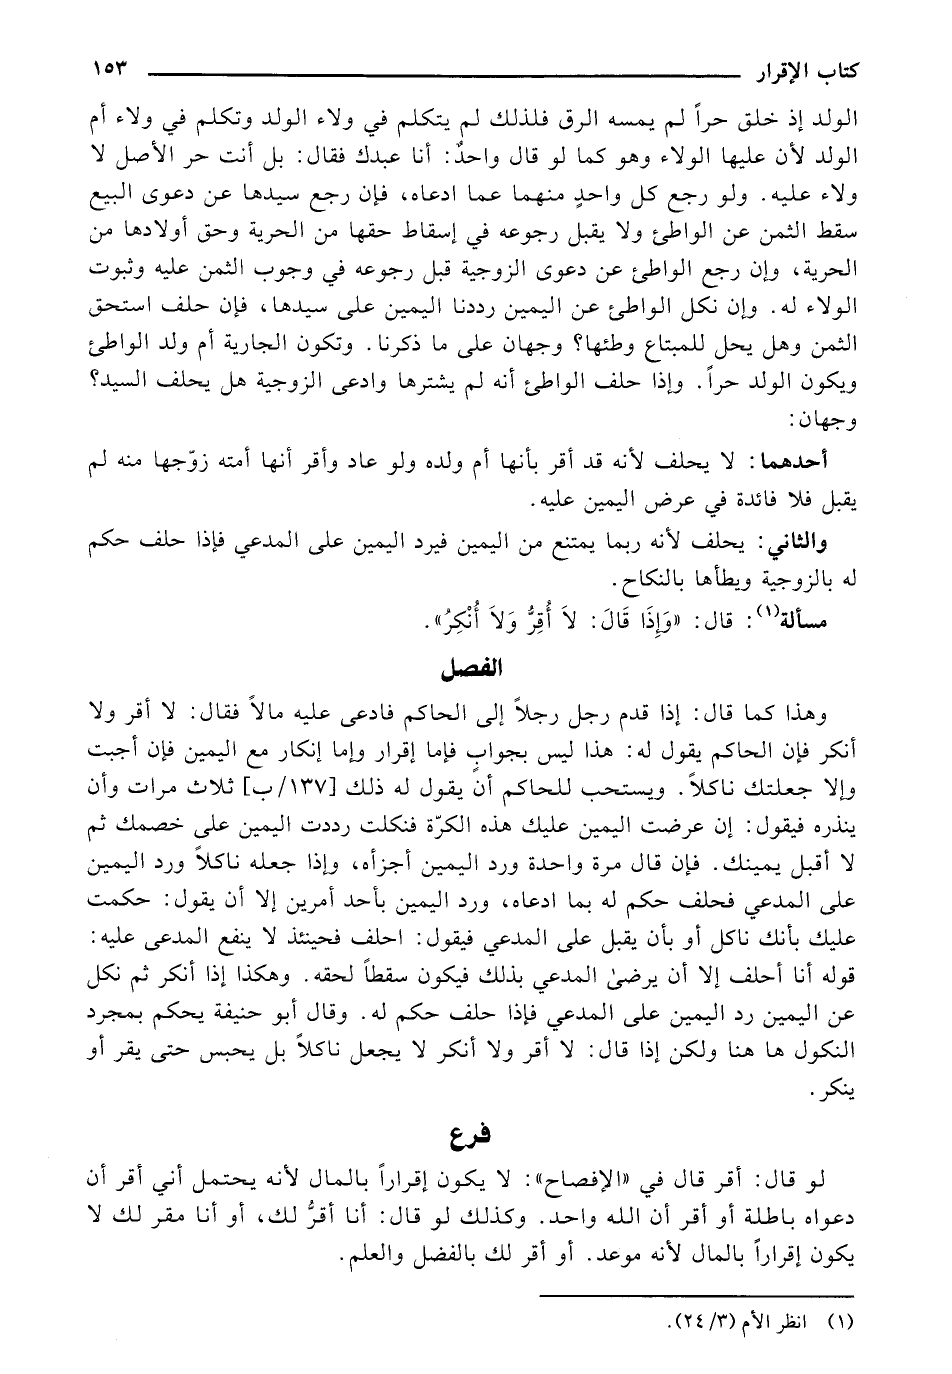 كتاب الإقرار ١٥٣
الولد إذ خلق حراً لم يمسه الرق فلذلك لم يتكلم في ولاء الولد وتكلم في ولاء أم
الولد لأن عليها الولاء وهو كما لو قال واحدٌ: أنا عبدك فقال: بل أنت حر الأصل لا
ولاء عليه. ولو رجع كل واحدٍ منهما عما ادعاه، فإن رجع سيدها عن دعوى البيع
سقط الثمن عن الواطئ ولا يقبل رجوعه في إسقاط حقها من الحرية وحق أولادها من
الحرية، وإن رجع الواطئ عن دعوى الزوجية قبل رجوعه في وجوب الثمن عليه وثبوت
الولاء له. وإن نكل الواطئ عن اليمين رددنا اليمين على سيدها، فإن حلف استحق
الثمن وهل يحل للمبتاع وطئها؟ وجهان على ما ذكرنا. وتكون الجارية أم ولد الواطئ
ويكون الولد حراً. وإذا حلف الواطئ أنه لم يشترها وادعى الزوجية هل يحلف السيد؟
وجهان:
أحدهما: لا يحلف لأنه قد أقر بأنها أم ولده ولو عاد وأقر أنها أمته زوّجها منه لم
يقبل فلا فائدة في عرض اليمين عليه.
والثاني: يحلف لأنه ربما يمتنع من اليمين فيرد اليمين على المدعي فإذا حلف حكم
له بالزوجية ويطأها بالنكاح.
مسألة(١): قال: «وَإِذَا قَالَ: لاَ أُقِرُّ وَلاَ أُنْكِرُ».
الفصل
وهذا كما قال: إذا قدم رجل رجلاً إلى الحاكم فادعى عليه مالاً فقال: لا أقر ولا
أنكر فإن الحاكم يقول له: هذا ليس بجوابٍ فإما إقرار وإما إنكار مع اليمين فإن أجبت
وإلا جعلتك ناكلاً. ويستحب للحاكم أن يقول له ذلك [١٣٧/ب] ثلاث مرات وأن
ينذره فيقول: إن عرضت اليمين عليك هذه الكرّة فنكلت رددت اليمين على خصمك ثم
لا أقبل يمينك. فإن قال مرة واحدة ورد اليمين أجزأه، وإذا جعله ناكلاً ورد اليمين
على المدعي فحلف حكم له بما ادعاه، ورد اليمين بأحد أمرين إلا أن يقول: حكمت
عليك بأنك ناكل أو بأن يقبل على المدعي فيقول: احلف فحينئذ لا ينفع المدعى عليه:
قوله أنا أحلف إلا أن يرضىٰ المدعي بذلك فيكون سقطاً لحقه. وهكذا إذا أنكر ثم نكل
عن اليمين رد اليمين على المدعي فإذا حلف حكم له. وقال أبو حنيفة يحكم بمجرد
النكول ها هنا ولكن إذا قال: لا أقر ولا أنكر لا يجعل ناكلاً بل يحبس حتى يقر أو
ينكر.
فرع
لو قال: أقر قال في «الإفصاح»: لا يكون إقراراً بالمال لأنه يحتمل أني أقر أن
دعواه باطلة أو أقر أن الله واحد. وكذلك لو قال: أنا أقرُّ لك، أو أنا مقر لك لا
يكون إقراراً بالمال لأنه موعد. أو أقر لك بالفضل والعلم.
(١) انظر الأم (٣/ ٢٤).